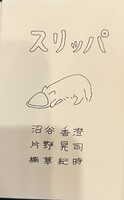 スリッパ
沼谷香澄
片野晃司
楠葉紀時